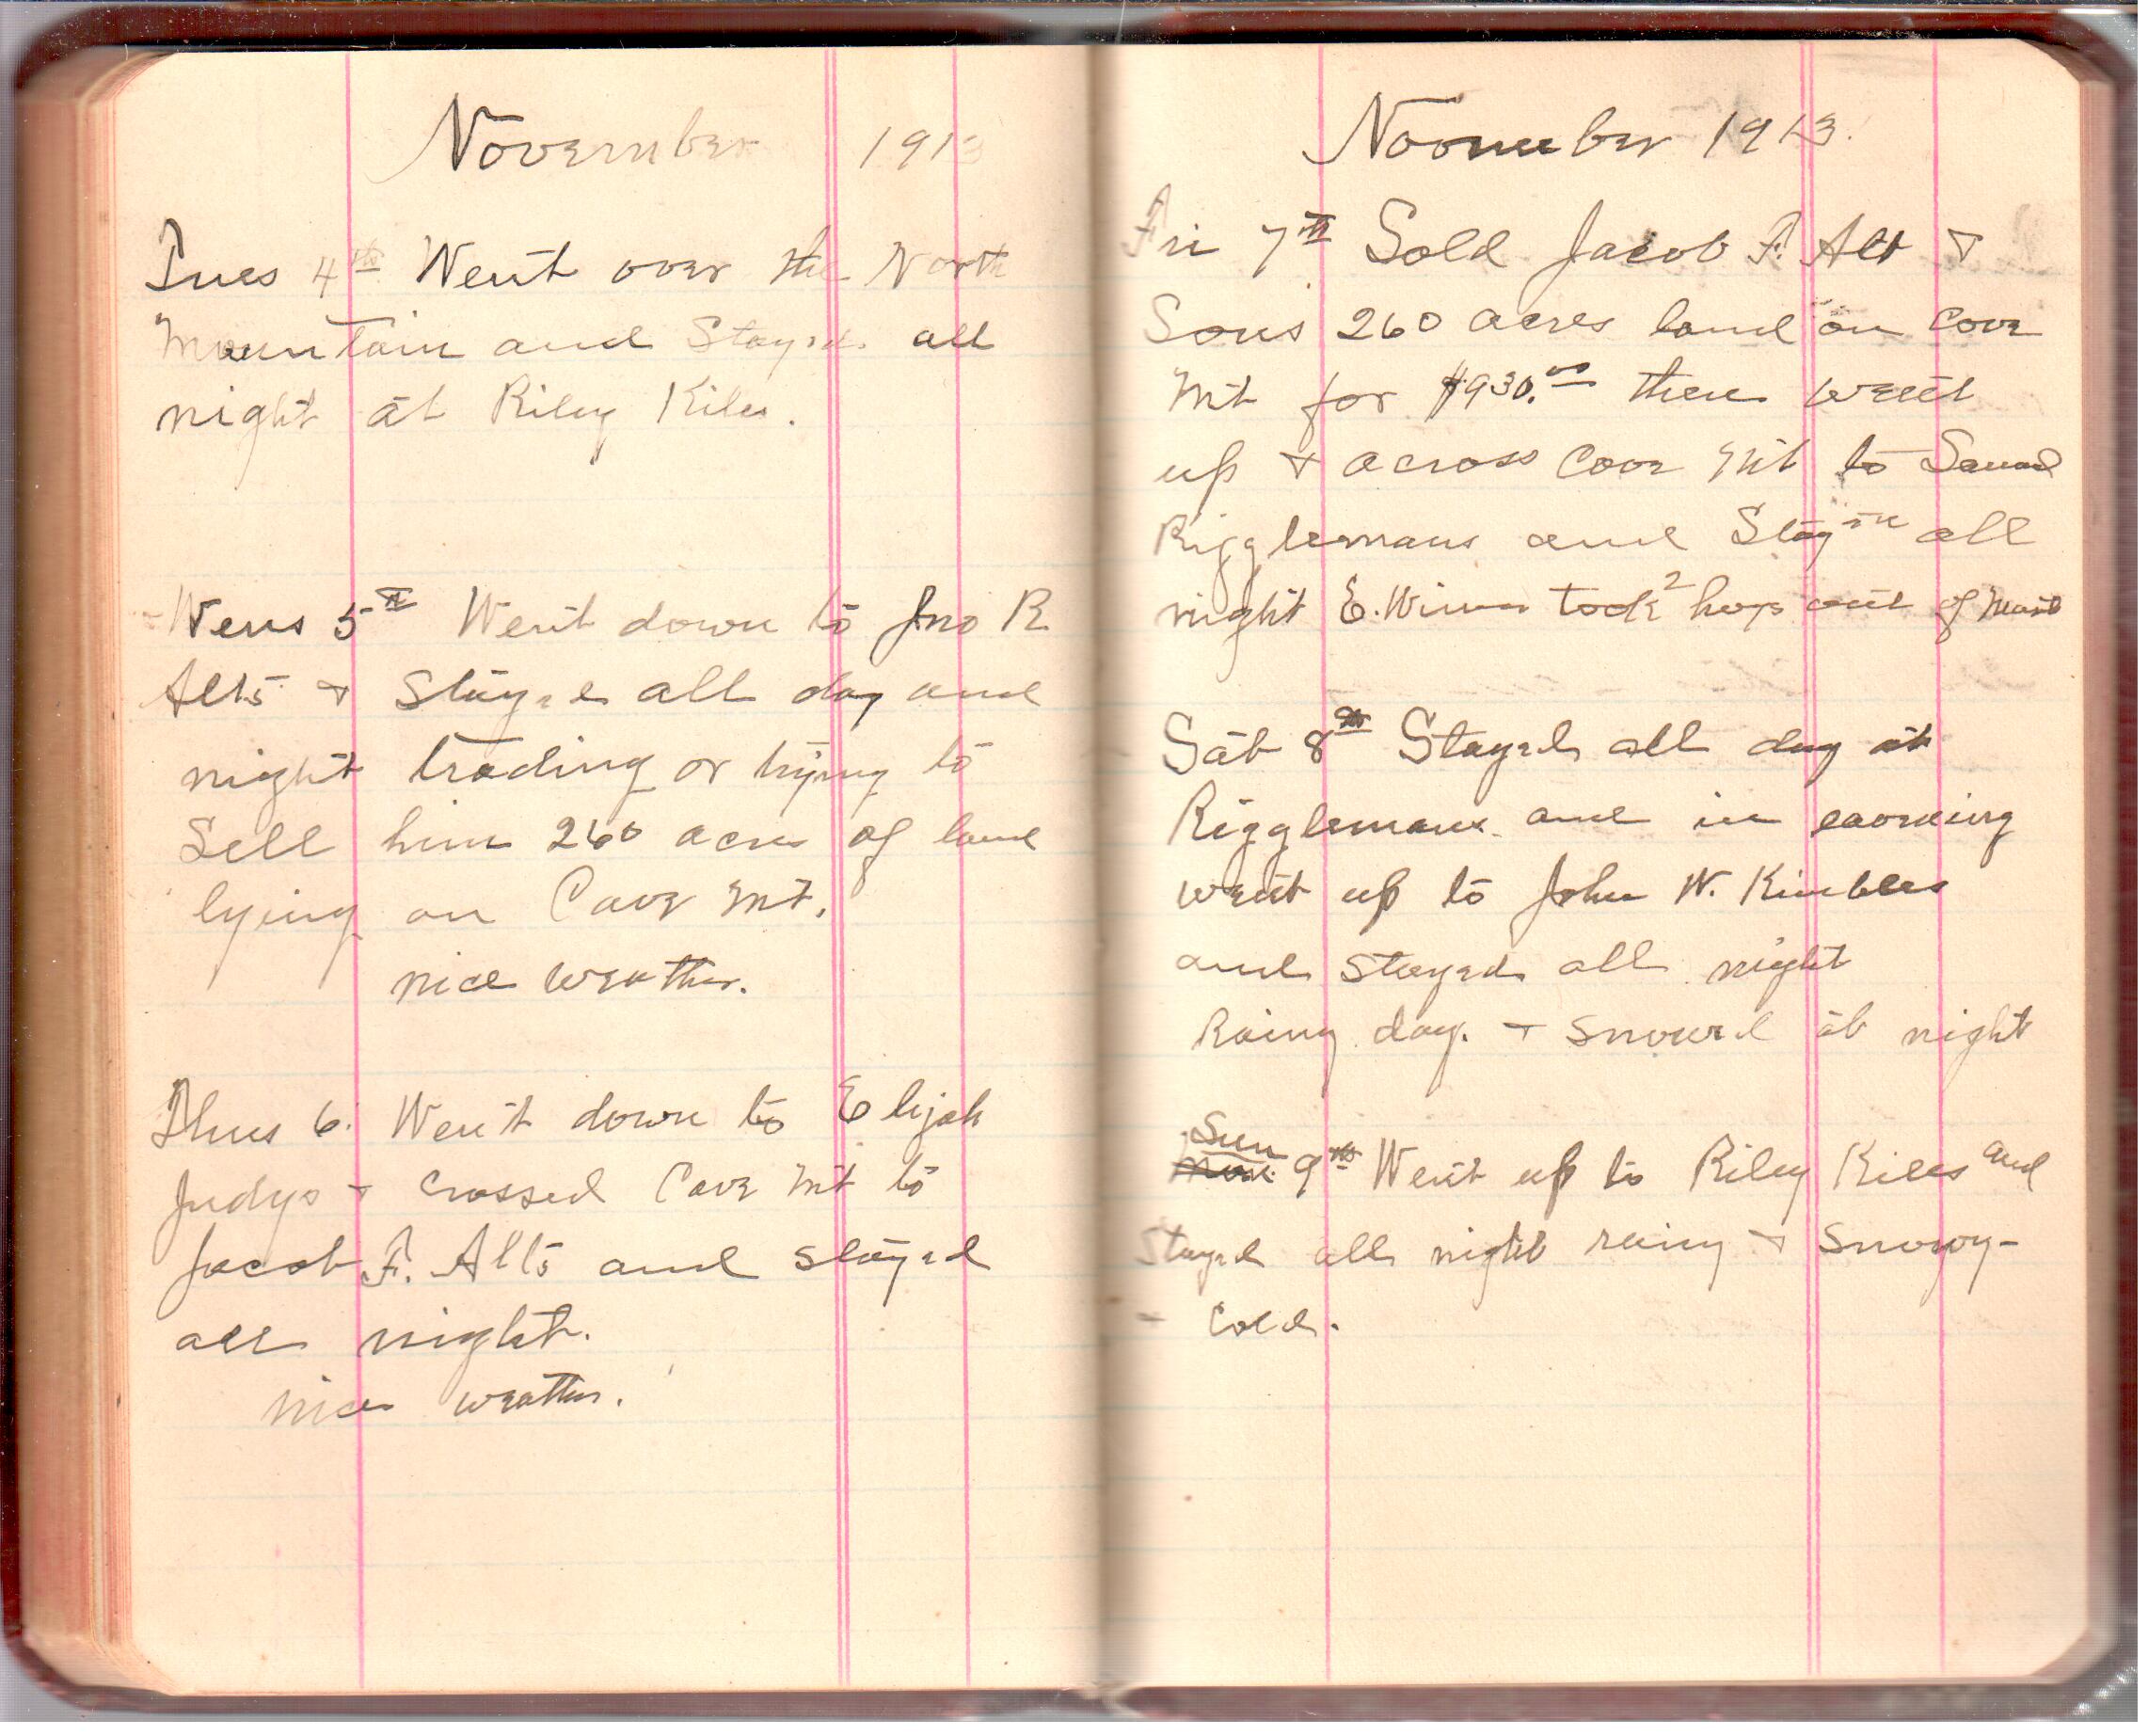 November 1913
Tues 4th Went over the North
Mountain and Stayed all
night at Riley Kiles.
Wens 5th Went down to Jno R
Alts & Stayed all day and
night trading or trying to
Sell him 260 acres of land
lying on Cave Mt.
nice weather.
Thus 6. Went down to Elijah
Judys & crossed Cave Mt to
Jacob F. Alts and stayed
all night.
nice weather.
November 1913.
Fri 7th Sold Jacob F. Alt &
Sons 260 acres land on Cove
Mt for $930.00 then went
up & across Cove Mt to
Rigglemans and Stayed all
night E. Wimer took 2 hogs out of
Sat 8th Stayed all day at
Rigglemans and in evening
went up to John W. Kimbles
and stayed all night
Rainy day. & snowed at night
Sun
Mon 9th Went up to Riley Kiles and
Stayed all night rainy & Snowy-
- Cold.